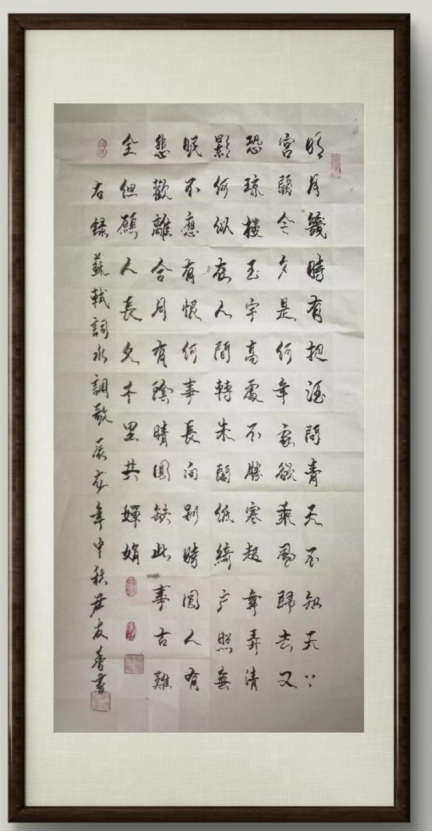 明月幾時有把酒問青天不知天上
宮闕今夕是何年我欲乘風歸去又
恐瓊樓玉宇高處不勝寒起舞弄清
影何似在人間轉朱閣低綺戶照無
眠不應有恨何事長向別時圓人有
悲歡離合月有陰晴圓缺此事古難
全但願人長久千里共嬋娟
右錄蘇軾詞水調歌年中秋書